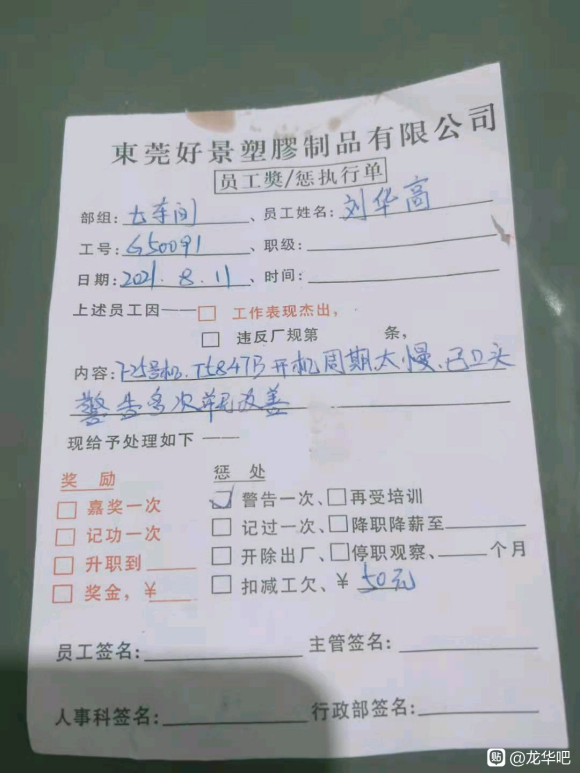 東莞好景塑膠制品有限公司
员工奬/惩执行单
部组: 大车间 、员工姓名: 刘华高
工号: G50091 、职级:
日期: 2021.8.11 、时间:
上述员工因——□ 工作表现杰出,
□ 违反厂规第 条,
内容: 25号机. T5847B 开机周期太慢、已口头
警告多次未改善
现给予处理如下 ——
奖 励 惩 处
□ 嘉奖一次 ☑ 警告一次、□再受培训
□ 记功一次 □ 记过一次、□降职降薪至
□ 升职到 □ 开除出厂、□停职观察、 个月
□ 奖金,¥ □ 扣减工欠、¥ 50元
员工签名: 主管签名:
人事科签名: 行政部签名:
贴 @龙华吧